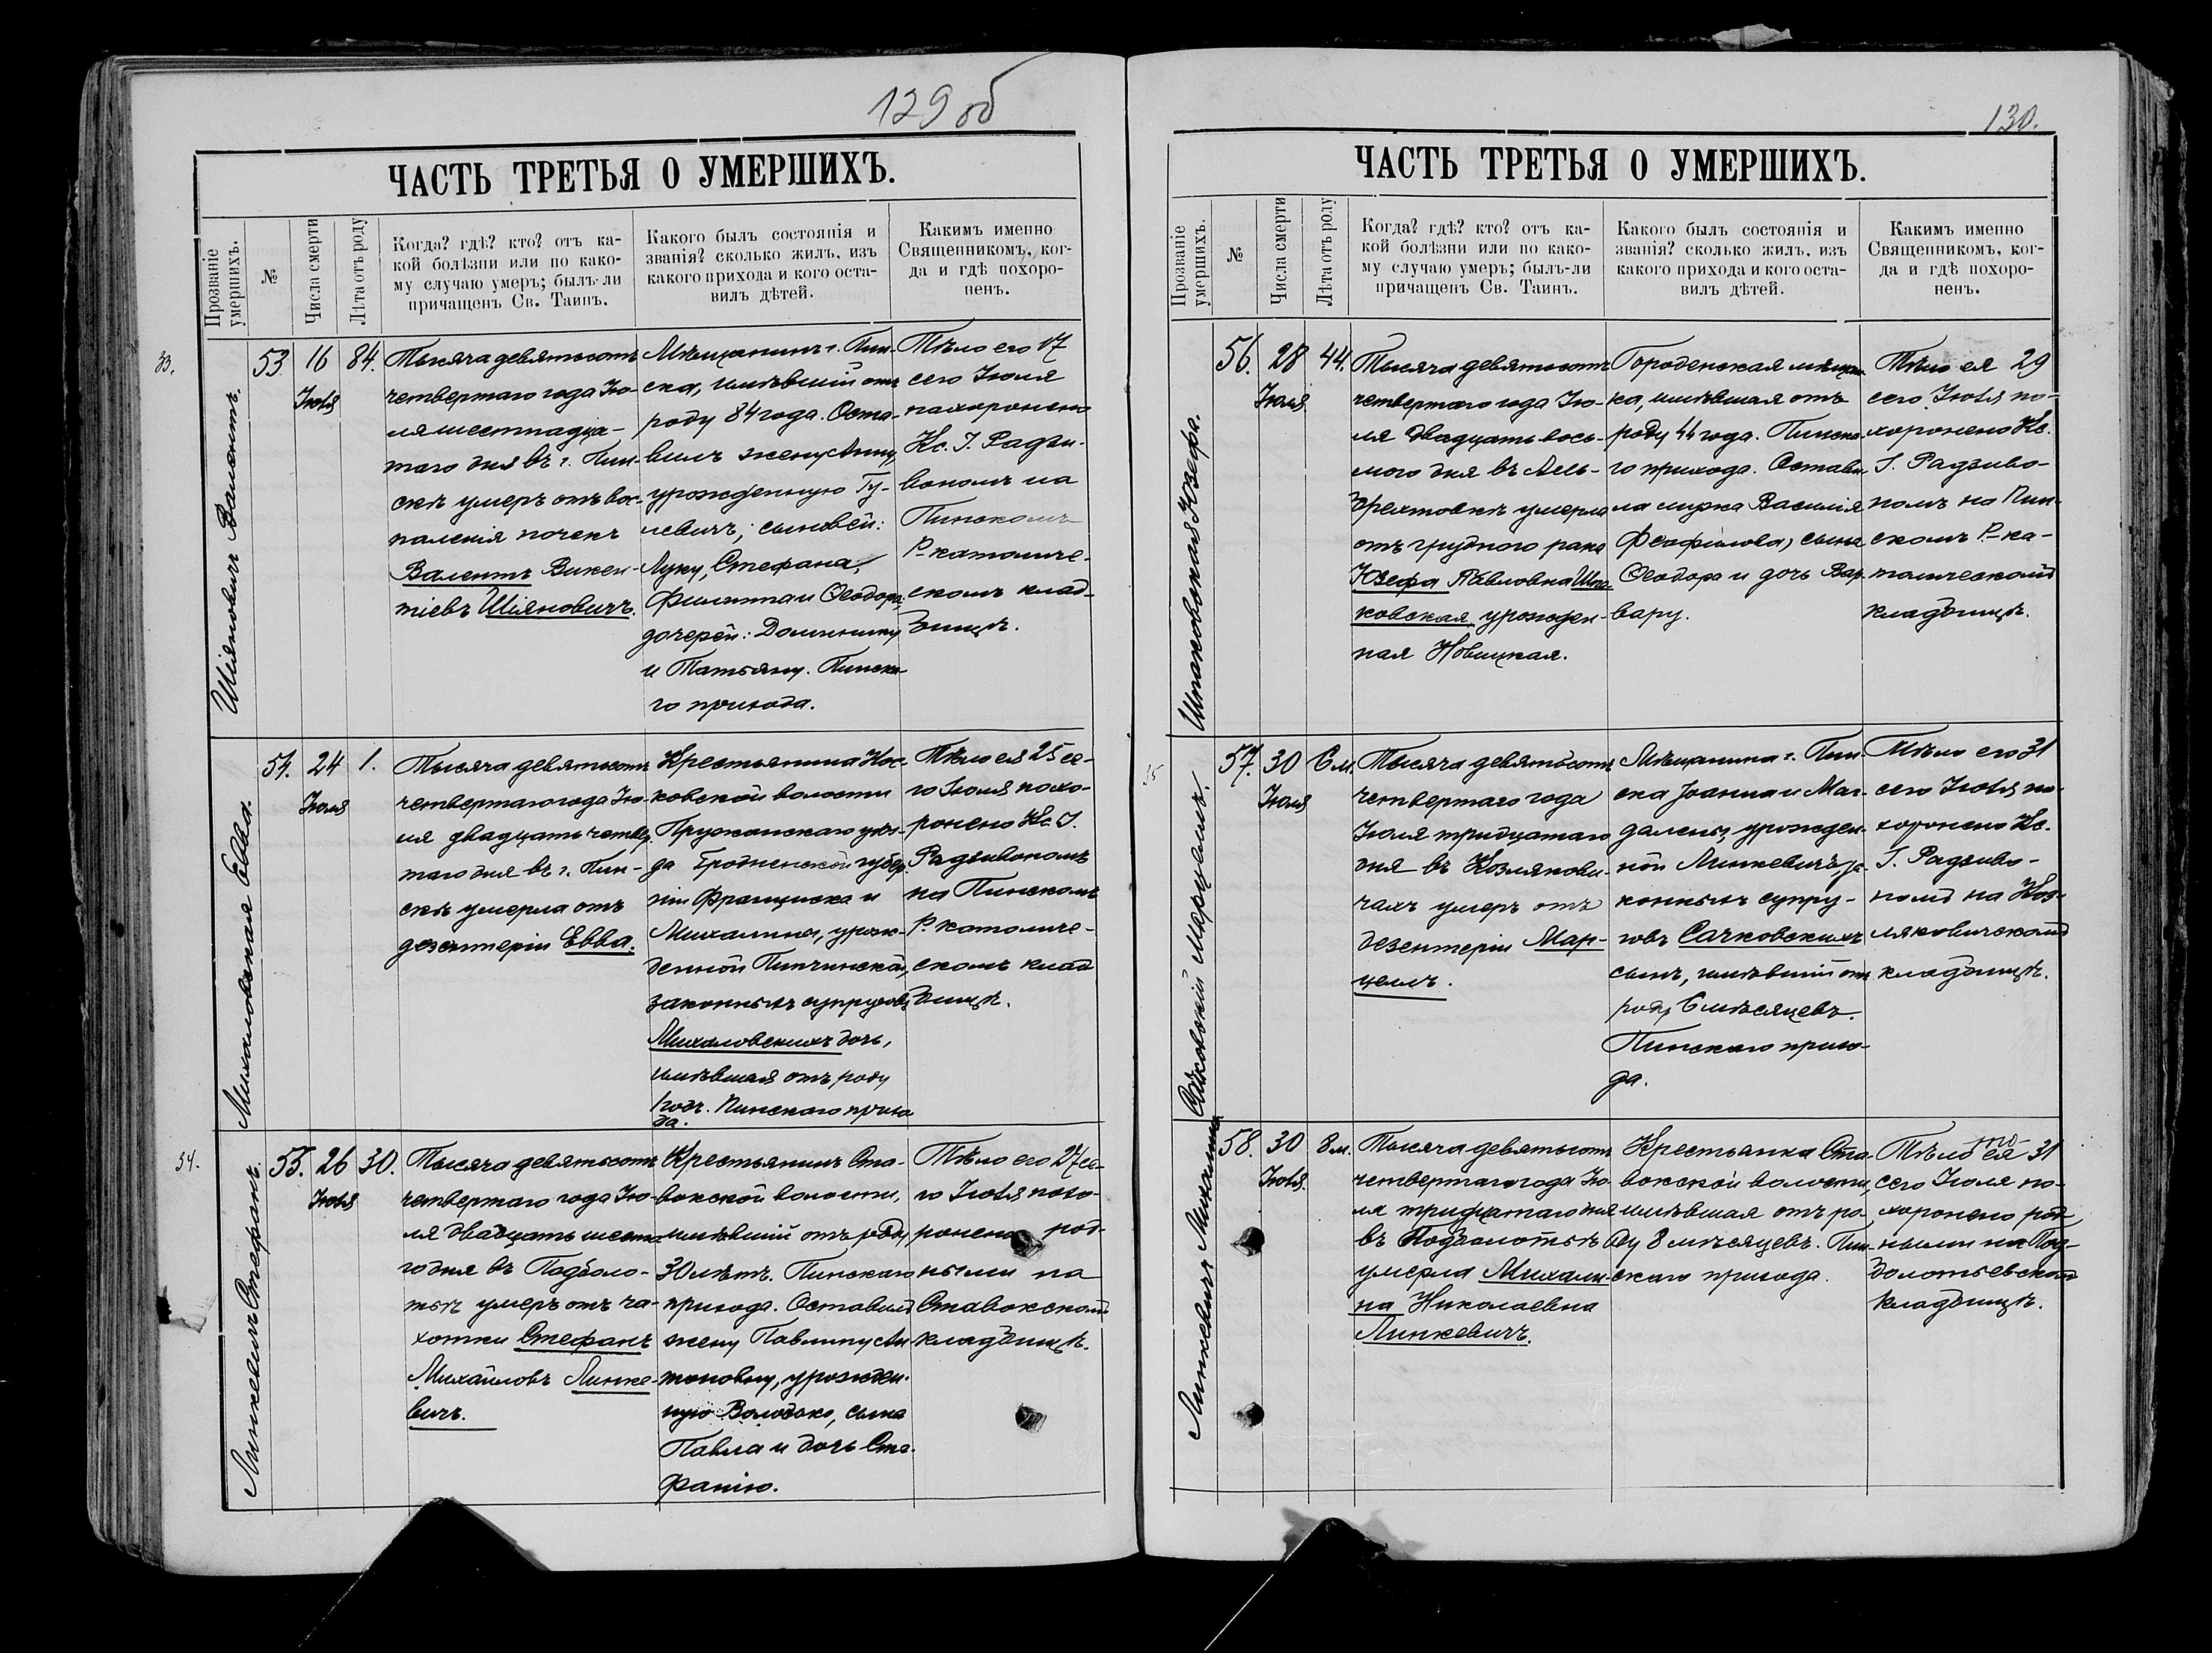 129 об
ЧАСТЬ ТРЕТЬЯ О УМЕРШИХЪ.
Прозваніе умершихъ.
№
Числа смерти
Лѣта отъ роду
Когда? гдѣ? кто? отъ ка-
кой болѣзни или по како-
му случаю умеръ; былъ-ли
причащенъ Св. Таинъ.
Какого былъ состоянія и
званія? сколько жилъ, изъ
какого прихода и кого оста-
вилъ дѣтей.
Какимъ именно
Священникомъ, ког-
да и гдѣ похоро-
ненъ.
33.
Шіяновичъ Валентъ.
53
16
Іюля
84.
Тысяча девятьсотъ
четвертаго года Ію-
ля шестнадца-
таго дня въ г. Пин-
скѣ умеръ отъ вос-
паленія почекъ
Валентъ Викен-
тіевъ Шіяновичъ.
Мѣщанинъ г. Пин-
ска, имѣвшій отъ
роду 84 года. Оста-
вилъ жену Анну,
урожденную Гу-
левичъ; сыновей:
Луку, Стефана,
Филиппа и Ѳеодора,
дочерей: Доминику
и Татьяну. Пинска-
го прихода.
Тѣло его 17
сего Іюля
похоронено
Кс. І. Радзи-
вономъ на
Пинскомъ
Р.-католиче-
скомъ клад-
бищѣ.
Михаловская Евва.
54.
24
Іюля
1.
Тысяча девятьсотъ
четвертаго года Ію-
ля двадцать четвер
таго дня въ г. Пин-
скѣ умерла отъ
дезентеріи Евва.
Крестьянина Нос-
ковской волости
Пружанскаго уѣз-
да Гродненской губер
ніи Франциска и
Михалины, урож-
денной Пипчинской,
законныхъ супруговъ
Михаловскихъ дочь,
имѣвшая отъ роду
1 годъ. Пинскаго прихо
да.
Тѣло ея 25 се-
го Іюля похо-
ронено Кс. І.
Радзивономъ
на Пинскомъ
Р. католиче-
скомъ клад
бищѣ.
34.
Линкевичъ Стефанъ.
55.
26
Іюля
30.
Тысяча девятьсотъ
четвертаго года Ію-
ля двадцать шеста
го дня въ Подболо-
тьѣ умеръ отъ ча-
хотки Стефанъ
Михайловъ Линке-
вичъ.
Крестьянинъ Ста-
вокской волости,
имѣвшій отъ роду
30 лѣтъ. Пинскаго
прихода. Оставилъ
жену Павлину Ан
тоновну, урожден-
ную Володько, сына
Павла и дочь Сте-
фанію.
Тѣло его 27 се-
го Іюля похо-
ронено род-
ными на
Ставокскомъ
кладбищѣ.
130.
ЧАСТЬ ТРЕТЬЯ О УМЕРШИХЪ.
Прозваніе умершихъ.
№
Числа смерти
Лѣта отъ роду
Когда? гдѣ? кто? отъ ка-
кой болѣзни или по како-
му случаю умеръ; былъ-ли
причащенъ Св. Таинъ.
Какого былъ состоянія и
званія? сколько жилъ, изъ
какого прихода и кого оста-
вилъ дѣтей.
Какимъ именно
Священникомъ, ког-
да и гдѣ похоро-
ненъ.
Шпаковская Юзефа.
56.
28
Іюля
44.
Тысяча девятьсотъ
четвертаго года Ію-
ля двадцать вось-
мого дня въ Аль-
брехтовкѣ умерла
отъ грудного рака
Юзефа Павловна Шпа
ковская, урожден-
ная Новицкая.
Городенская мѣщан
ка, имѣвшая отъ
роду 44 года. Пинска
го прихода. Остави
ла мужа Василія
Феофилова, сына
Ѳеодора и дочь Вар
вару.
Тѣло ея 29
сего Іюля по-
хоронено Кс.
І. Радзиво-
номъ на Пин-
скомъ Р.-ка-
толическомъ
кладбищѣ.
Сачковскій Марцелъ.
57.
30
Іюля
6 м.
Тысяча девятьсотъ
четвертаго года
Іюля тридцатаго
дня въ Козлякови-
чахъ умеръ отъ
дезентеріи Мар-
целъ.
Мѣщанина г. Пин
ска Іоанна и Маг-
далены, урожден-
ной Линкевичъ, за-
конныхъ супру-
говъ Сачковскихъ
сынъ, имѣвшій отъ
роду 6 мѣсяцевъ.
Пинскаго прихо-
да.
Тѣло его 31
сего Іюля по-
хоронено Кс.
І. Радзиво-
номъ на Коз-
ляковичскомъ
кладбищѣ.
Линкевичъ Михалина
58.
30
Іюля.
8 м.
Тысяча девятьсотъ
четвертаго года Ію
ля тридцатаго дня
въ Подболотьѣ
умерла Михали-
на Николаевна
Линкевичъ.
Крестьянка Ста-
вокской волости,
имѣвшая отъ ро-
ду 8 мѣсяцевъ. Пин-
скаго прихода.
Тѣло ея 31
сего Іюля по-
хоронено род
ными на Под-
болотьевскомъ
кладбищѣ.